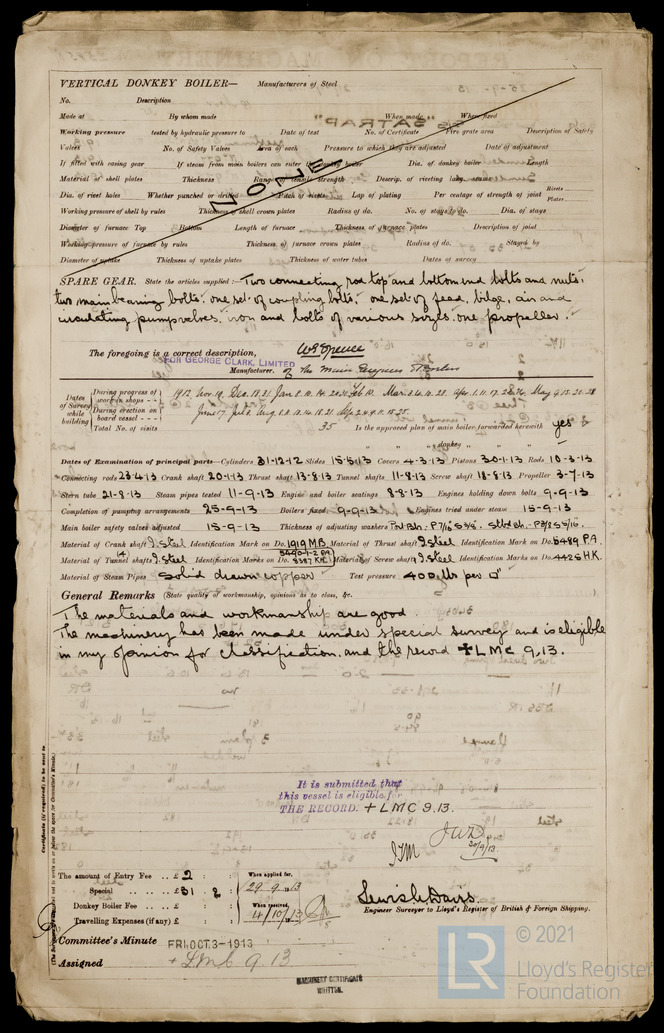 VERTICAL DONKEY BOILER— Manufacturers of Steel
No. Description
Made at By whom made When made When fixed
Working pressure tested by hydraulic pressure to Date of test No. of Certificate Fire grate area Description of Safety
Valves No. of Safety Valves Area of each Pressure to which they are adjusted Date of adjustment
If fitted with easing gear If steam from main boilers can enter the donkey boiler Dia. of donkey boiler Length
Material of shell plates Thickness Range of tensile strength Descrip. of riveting long. seams
Dia. of rivet holes Whether punched or drilled Pitch of rivets Lap of plating Per centage of strength of joint Rivets Plates
Working pressure of shell by rules Thickness of shell crown plates Radius of do. No. of stays to do. Dia. of stays
Diameter of furnace Top Bottom Length of furnace Thickness of furnace plates Description of joint
Working pressure of furnace by rules Thickness of furnace crown plates Radius of do. Stayed by
Diameter of uptake Thickness of uptake plates Thickness of water tubes Dates of survey
NONE
SPARE GEAR. State the articles supplied:— Two connecting rod top and bottom end bolts and nuts,
two main bearing bolts, one set of coupling bolts, one set of feed, bilge, air and
circulating pump valves, iron and bolts of various sizes, one propeller.
The foregoing is a correct description,
FOR GEORGE CLARK, LIMITED
Manufacturer. of the Main Engines & Boilers
Dates of Survey while building
During progress of work in shops - - 1912 Nov. 19. Dec. 18. 21. Jan 8. 10. 14. 20. 31. Feb 10. Mar. 3. 4. 10. 28. Apr. 1. 11. 17. 28. May 9. 12. 20. 28
During erection on board vessel - - -
Total No. of visits 35 Is the approved plan of main boiler forwarded herewith yes
" " " donkey " " "
Dates of Examination of principal parts—Cylinders 31-12-12 Slides 15-5-13 Covers 4-3-13 Pistons 30-1-13 Rods 10-3-13
Connecting rods 23-4-13 Crank shaft 20-1-13 Thrust shaft 13-8-13 Tunnel shafts 11-8-13 Screw shaft 18-8-13 Propeller 3-7-13
Stern tube 21-8-13 Steam pipes tested 11-9-13 Engine and boiler seatings 8-8-13 Engines holding down bolts 9-9-13
Completion of pumping arrangements 25-9-13 Boilers fixed 9-9-13 Engines tried under steam 15-9-13
Main boiler safety valves adjusted 15-9-13 Thickness of adjusting washers
Material of Crank shaft I. Steel Identification Mark on Do. 1919 MB Material of Thrust shaft I. Steel Identification Mark on Do. 5489 P.A.
Material of Tunnel shafts I. Steel Identification Marks on Do. Material of Screw shafts I. Steel Identification Marks on Do. 4425 H.K.
Material of Steam Pipes Solid drawn copper Test pressure 400 lbs per □"
General Remarks (State quality of workmanship, opinions as to class, &c.
The materials and workmanship are good.
The machinery has been made under special survey and is eligible
in my opinion for classification, and the record +LMC 9.13.
It is submitted that
this vessel is eligible for
THE RECORD. + LMC 9.13.
JWD
30/9/13
The amount of Entry Fee .. £ 2 : :
Special .. £ 31 : 2 :
Donkey Boiler Fee .. £ : :
Travelling Expenses (if any) £ : :
When applied for, 29.9.1913
When received, 4/10/13
Lewis C. Davis
Engineer Surveyor to Lloyd's Register of British & Foreign Shipping.
Committee's Minute FRI.OCT.3-1913
Assigned + LMC 9.13
MACHINERY CERTIFICATE
WRITTEN.
LR © 2021
Lloyd's Register
Foundation